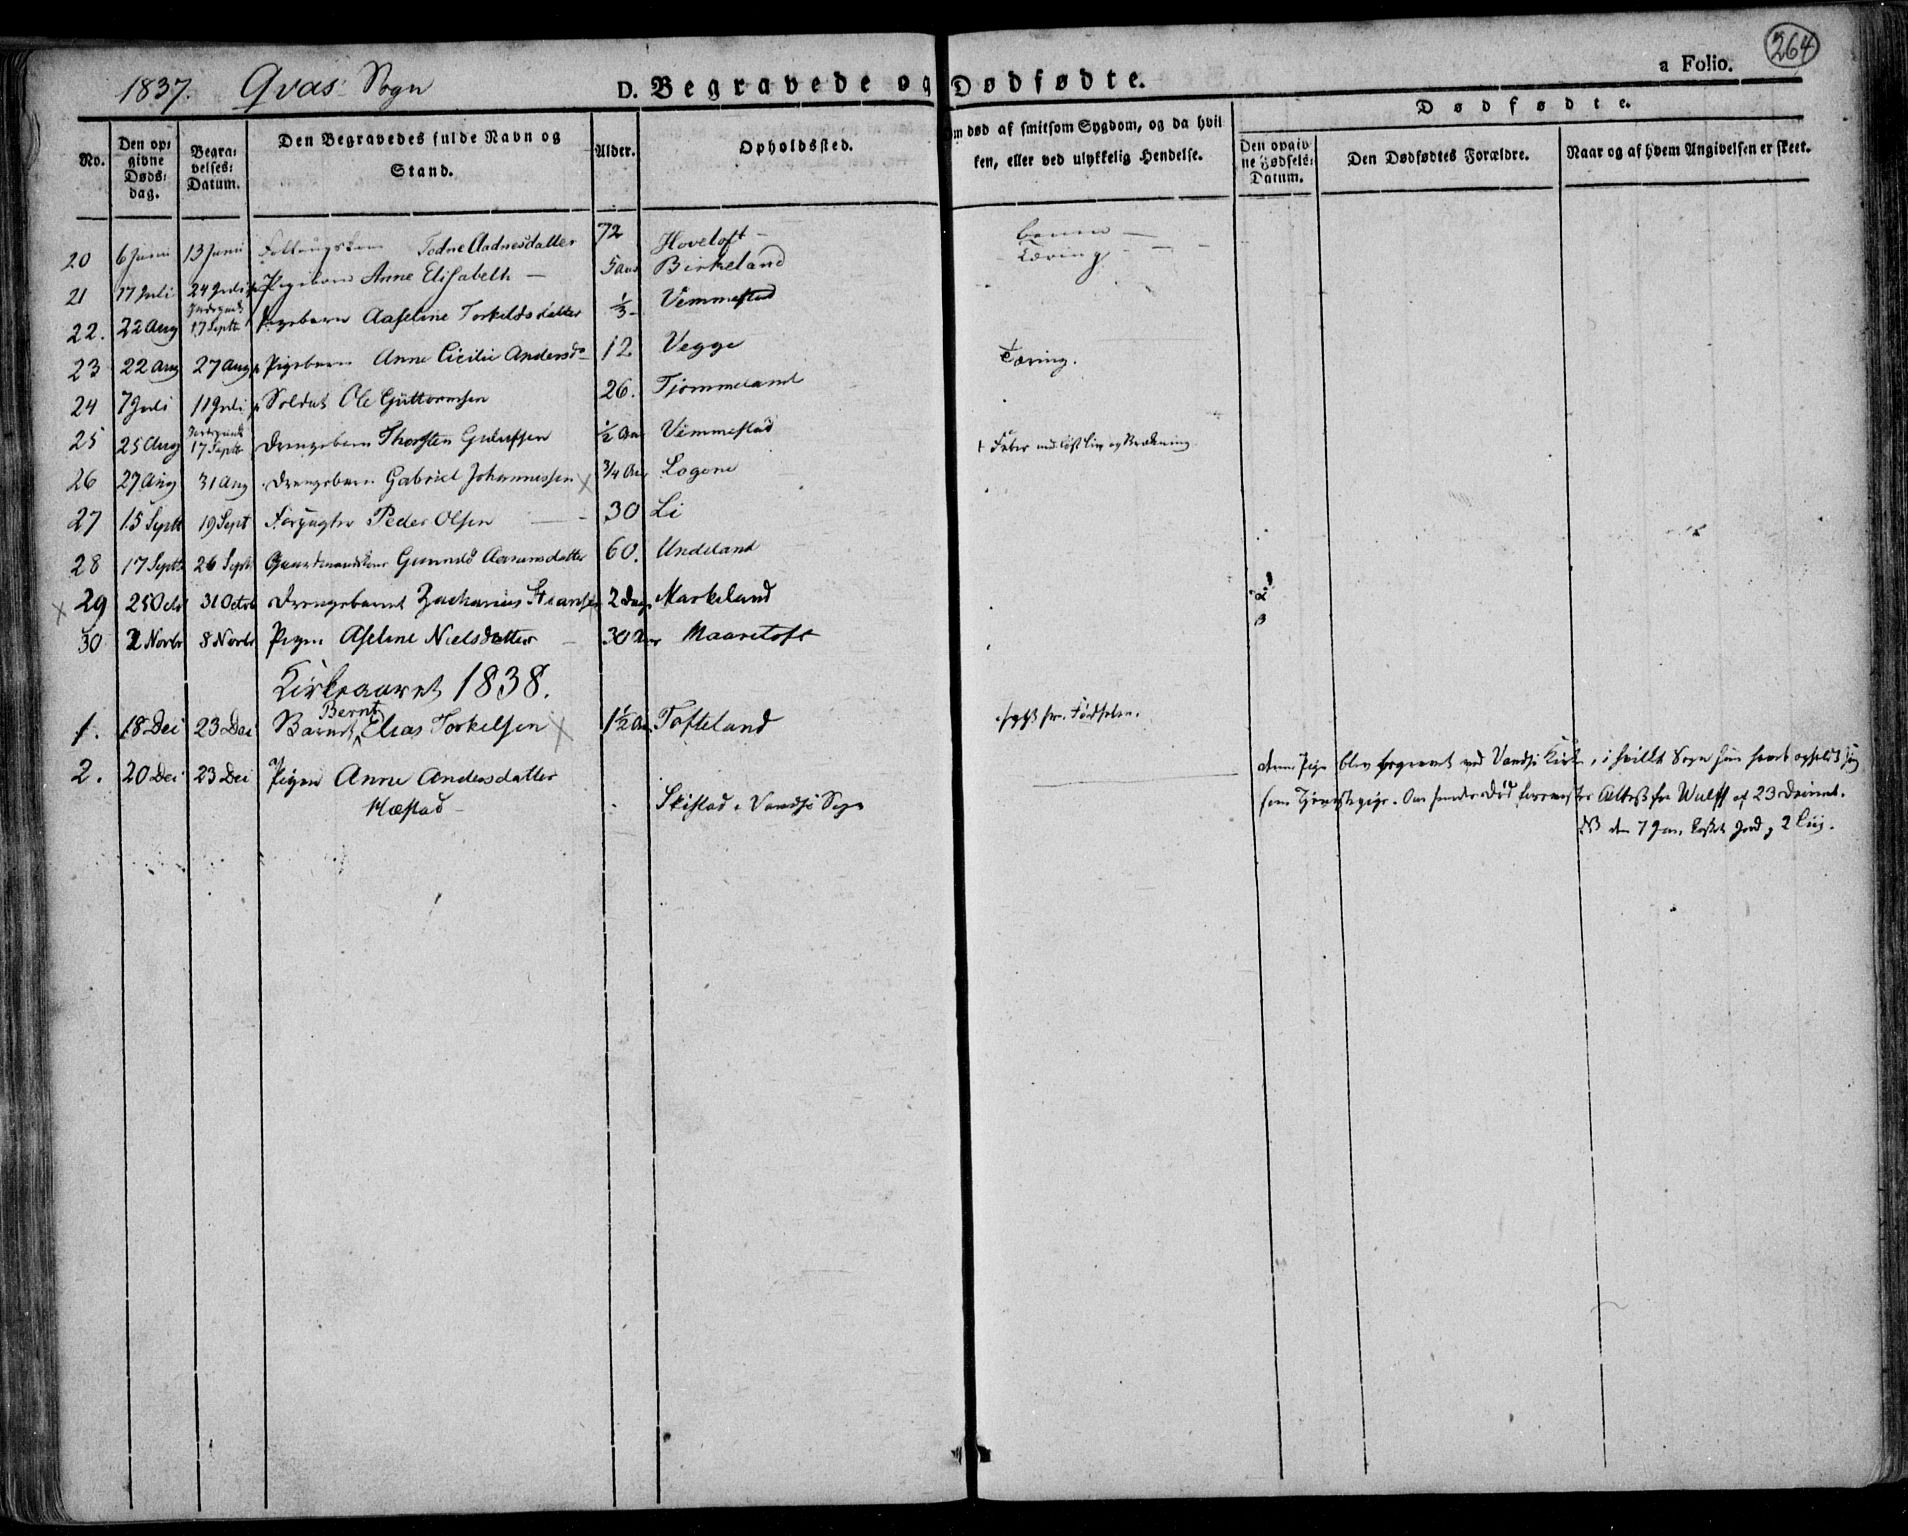 264
1837. Qvas Sogn D. Begravede og Dødfødte. a Folio.
Dødfødte.
No. Den opgivne Dødsdag. Begravelses-Datum. Den Begravedes fulde Navn og Stand. Alder. Opholdssted. Om død af smitsom Sygdom, og da hvilken, eller ved ulykkelig Hendelse. Den opgivne Fødsels-Datum. Den Dødfødtes Forældre. Naar og af hvem Angivelsen er skeet.
20 6 Juni 13 Juni Todne Aadnesdatter 72 Hoveloft
21 17 Juli 24 Juli Pigebarn Anne Elisabeth 5 Aar Birkeland Tæring
22. 22 Aug 17 Septb Pigebarn Aaseline Torkeldsdatter 1/3 Vemmestad
23 22 Aug 27 Aug Pigebarn Anne Cicilie Andersd 12 Vegge Tæring.
24 7 Juli 11 Juli Soldat Ole Guttormsen 26. Tjømmeland
25 25 Aug 17 Septb Drengebarn Thorsten 1/2 Aar Vemmestad
26 27 Aug 31 Aug Drengebarn Gabriel Johannessen 3/4 Aar Logene
27 15 Septb 19 Sept Peder Olsen 30 Li
28 17 Septb 26 Septb Gaardmandskone Gunnild Aanensdatter 60. Undeland
29 25 Octb 31 Octob Drengebarnet Zacharias 2 Dage Markeland
30 2 Novbr 8 Novbr Pigen Aseline Nielsdatter 30 Aar Maaretoft
Kirkeaaret 1838.
Bernt
1. 18 Dei 23 Dei Barnet Elias Torkelsen 1 1/2 Aar Tofteland Fødselen.
2. 20 Dei 23 Dei Pigen Anne Andersdatter denne Pige blev begravet ved Vandsø Kirke, i hvilket Sogn hun havde opholdt sig
Hæstad Skistad i Vandsø Sogn som Tjenestepige. Om hendes Død Attest fra Wulff af 23
NB den 7 Jan. kastet Jord 2 Liig.